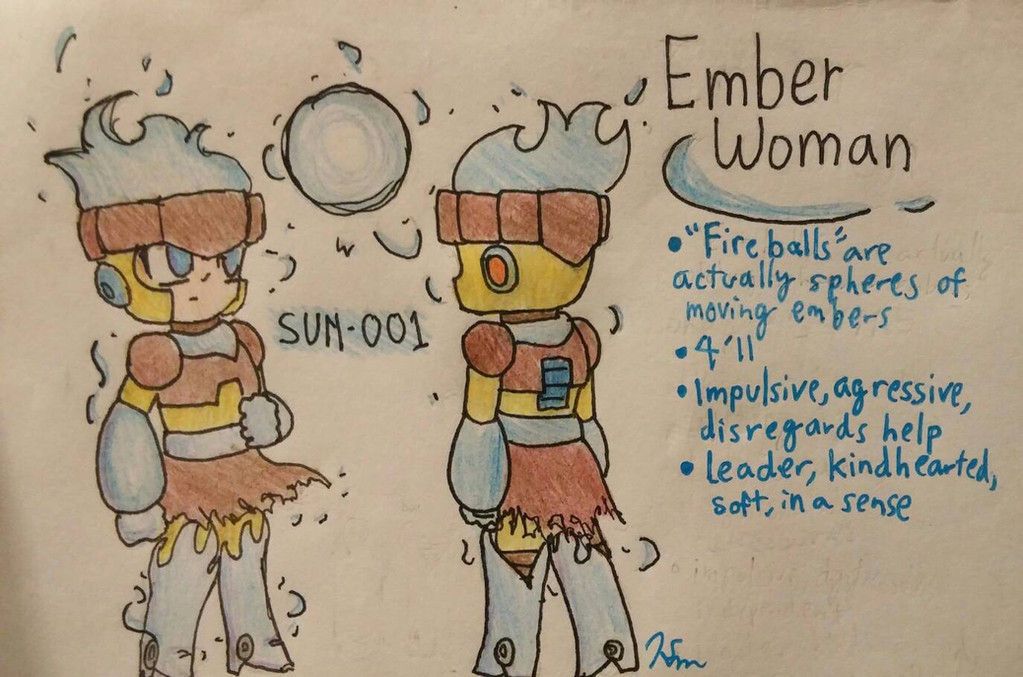 Ember
Woman
• "Fire balls" are
actually spheres of
moving embers
• 4'11
• Impulsive, agressive,
disregards help
• Leader, kindhearted,
soft, in a sense
SUM-001